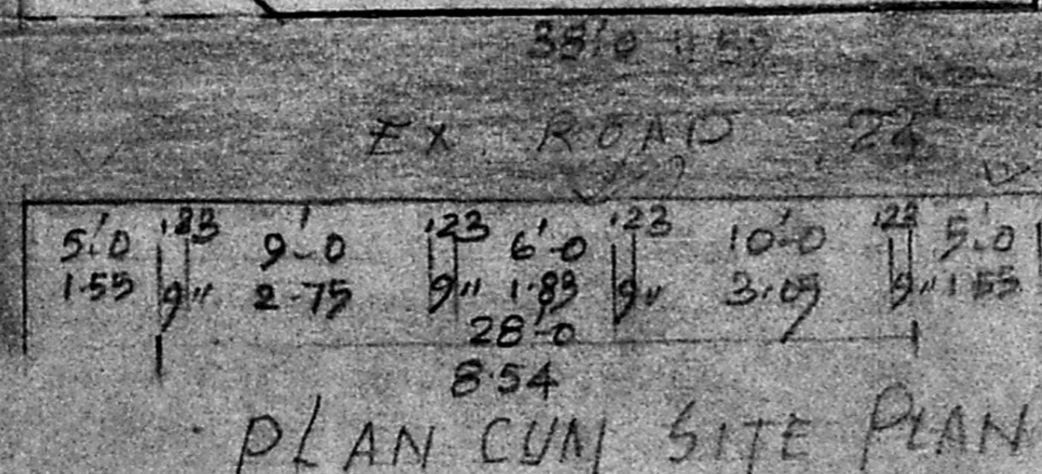 38'.0 11.59
EX. ROAD 24'
5'.0 .23 9'-0 .23 6'-0 .23 10'-0 .23 5'.0
1.55 9" 2.75 9" 1.83 9" 3.05 9" 1.55
28'-0
8.54
PLAN CUM SITE PLAN